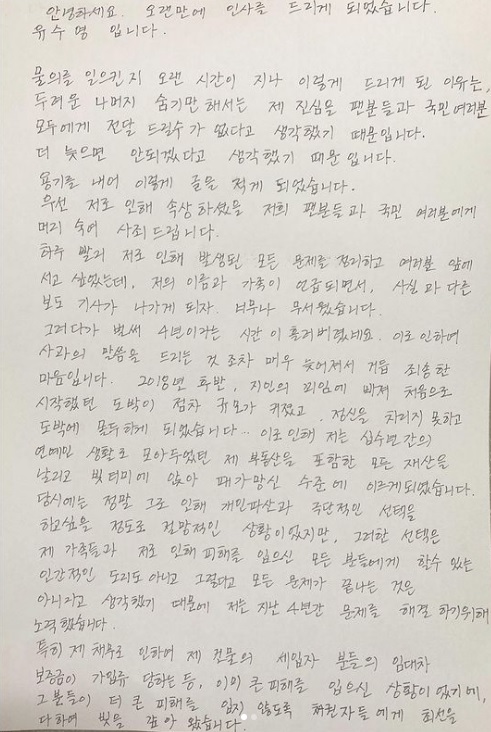 안녕하세요. 오랜만에 인사를 드리게 되었습니다.
유수영 입니다.
물의를 일으킨지 오랜 시간이 지나 이렇게 드리게 된 이유는,
두려운 나머지 숨기만 해서는 제 진심을 팬분들과 국민 여러분
모두에게 전달 드릴수가 없다고 생각했기 때문입니다.
더 늦으면 안되겠다고 생각했기 때문 입니다.
용기를 내어 이렇게 글을 적게 되었습니다.
우선 저로 인해 속상하셨을 저희 팬분들과 국민 여러분에게
머리 숙여 사죄드립니다.
하루 빨리 저로 인해 발생된 모든 문제를 정리하고 여러분 앞에
서고 싶었는데, 저의 이름과 가족이 언급되면서, 사실과 다른
보도 기사가 나가게 되자. 너무나 무서웠습니다.
그러다가 벌써 4년이라는 시간이 흘러버렸네요. 이로 인하여
사과의 말씀을 드리는 것 조차 매우 늦어져서 거듭 죄송한
마음입니다. 2018년 후반, 지인의 꾀임에 빠져 처음으로
시작했던 도박이 점차 규모가 커졌고. 정신을 차리지 못하고
도박에 몰두하게 되었습니다.. 이로 인해 저는 십수년간의
연예인 생활로 모아두었던 제 부동산을 포함한 모든 재산을
날리고 빚더미에 앉아 패가망신 수준에 이르게되었습니다.
당시에는 정말 그로 인해 개인파산과 극단적인 선택을
하고싶을 정도로 절망적인 상황이었지만, 그러한 선택은
제 가족들과 저로 인해 피해를 입으신 모든 분들에게 할수 있는
인간적인 도리도 아니고 그렇다고 모든 문제가 끝나는 것은
아니라고 생각했기 때문에 저는 지난 4년간 문제를 해결 하기위해
노력했습니다.
특히 제 채무로 인하여 제 건물의 세입자 분들의 임대차
보증금이 가압류 당하는 등, 이미 큰 피해를 입으신 상황이었기에,
그분들이 더 큰 피해를 입지 않도록 채권자들에게 최선을
다하여 빚을 갚아 왔습니다.